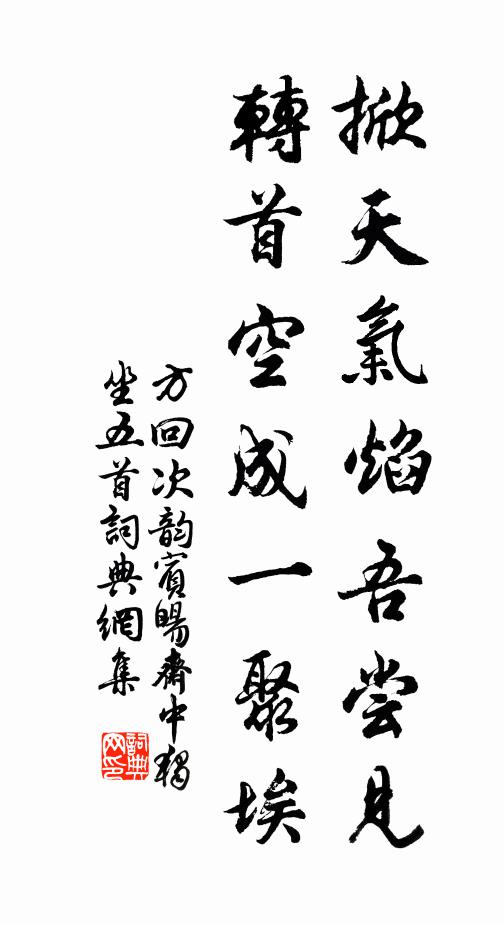 掀天氣焰吾尝見
轉首空成一聚埃
方回次韵賓暘齋中獨
坐五首詞典網集
詞典
网印